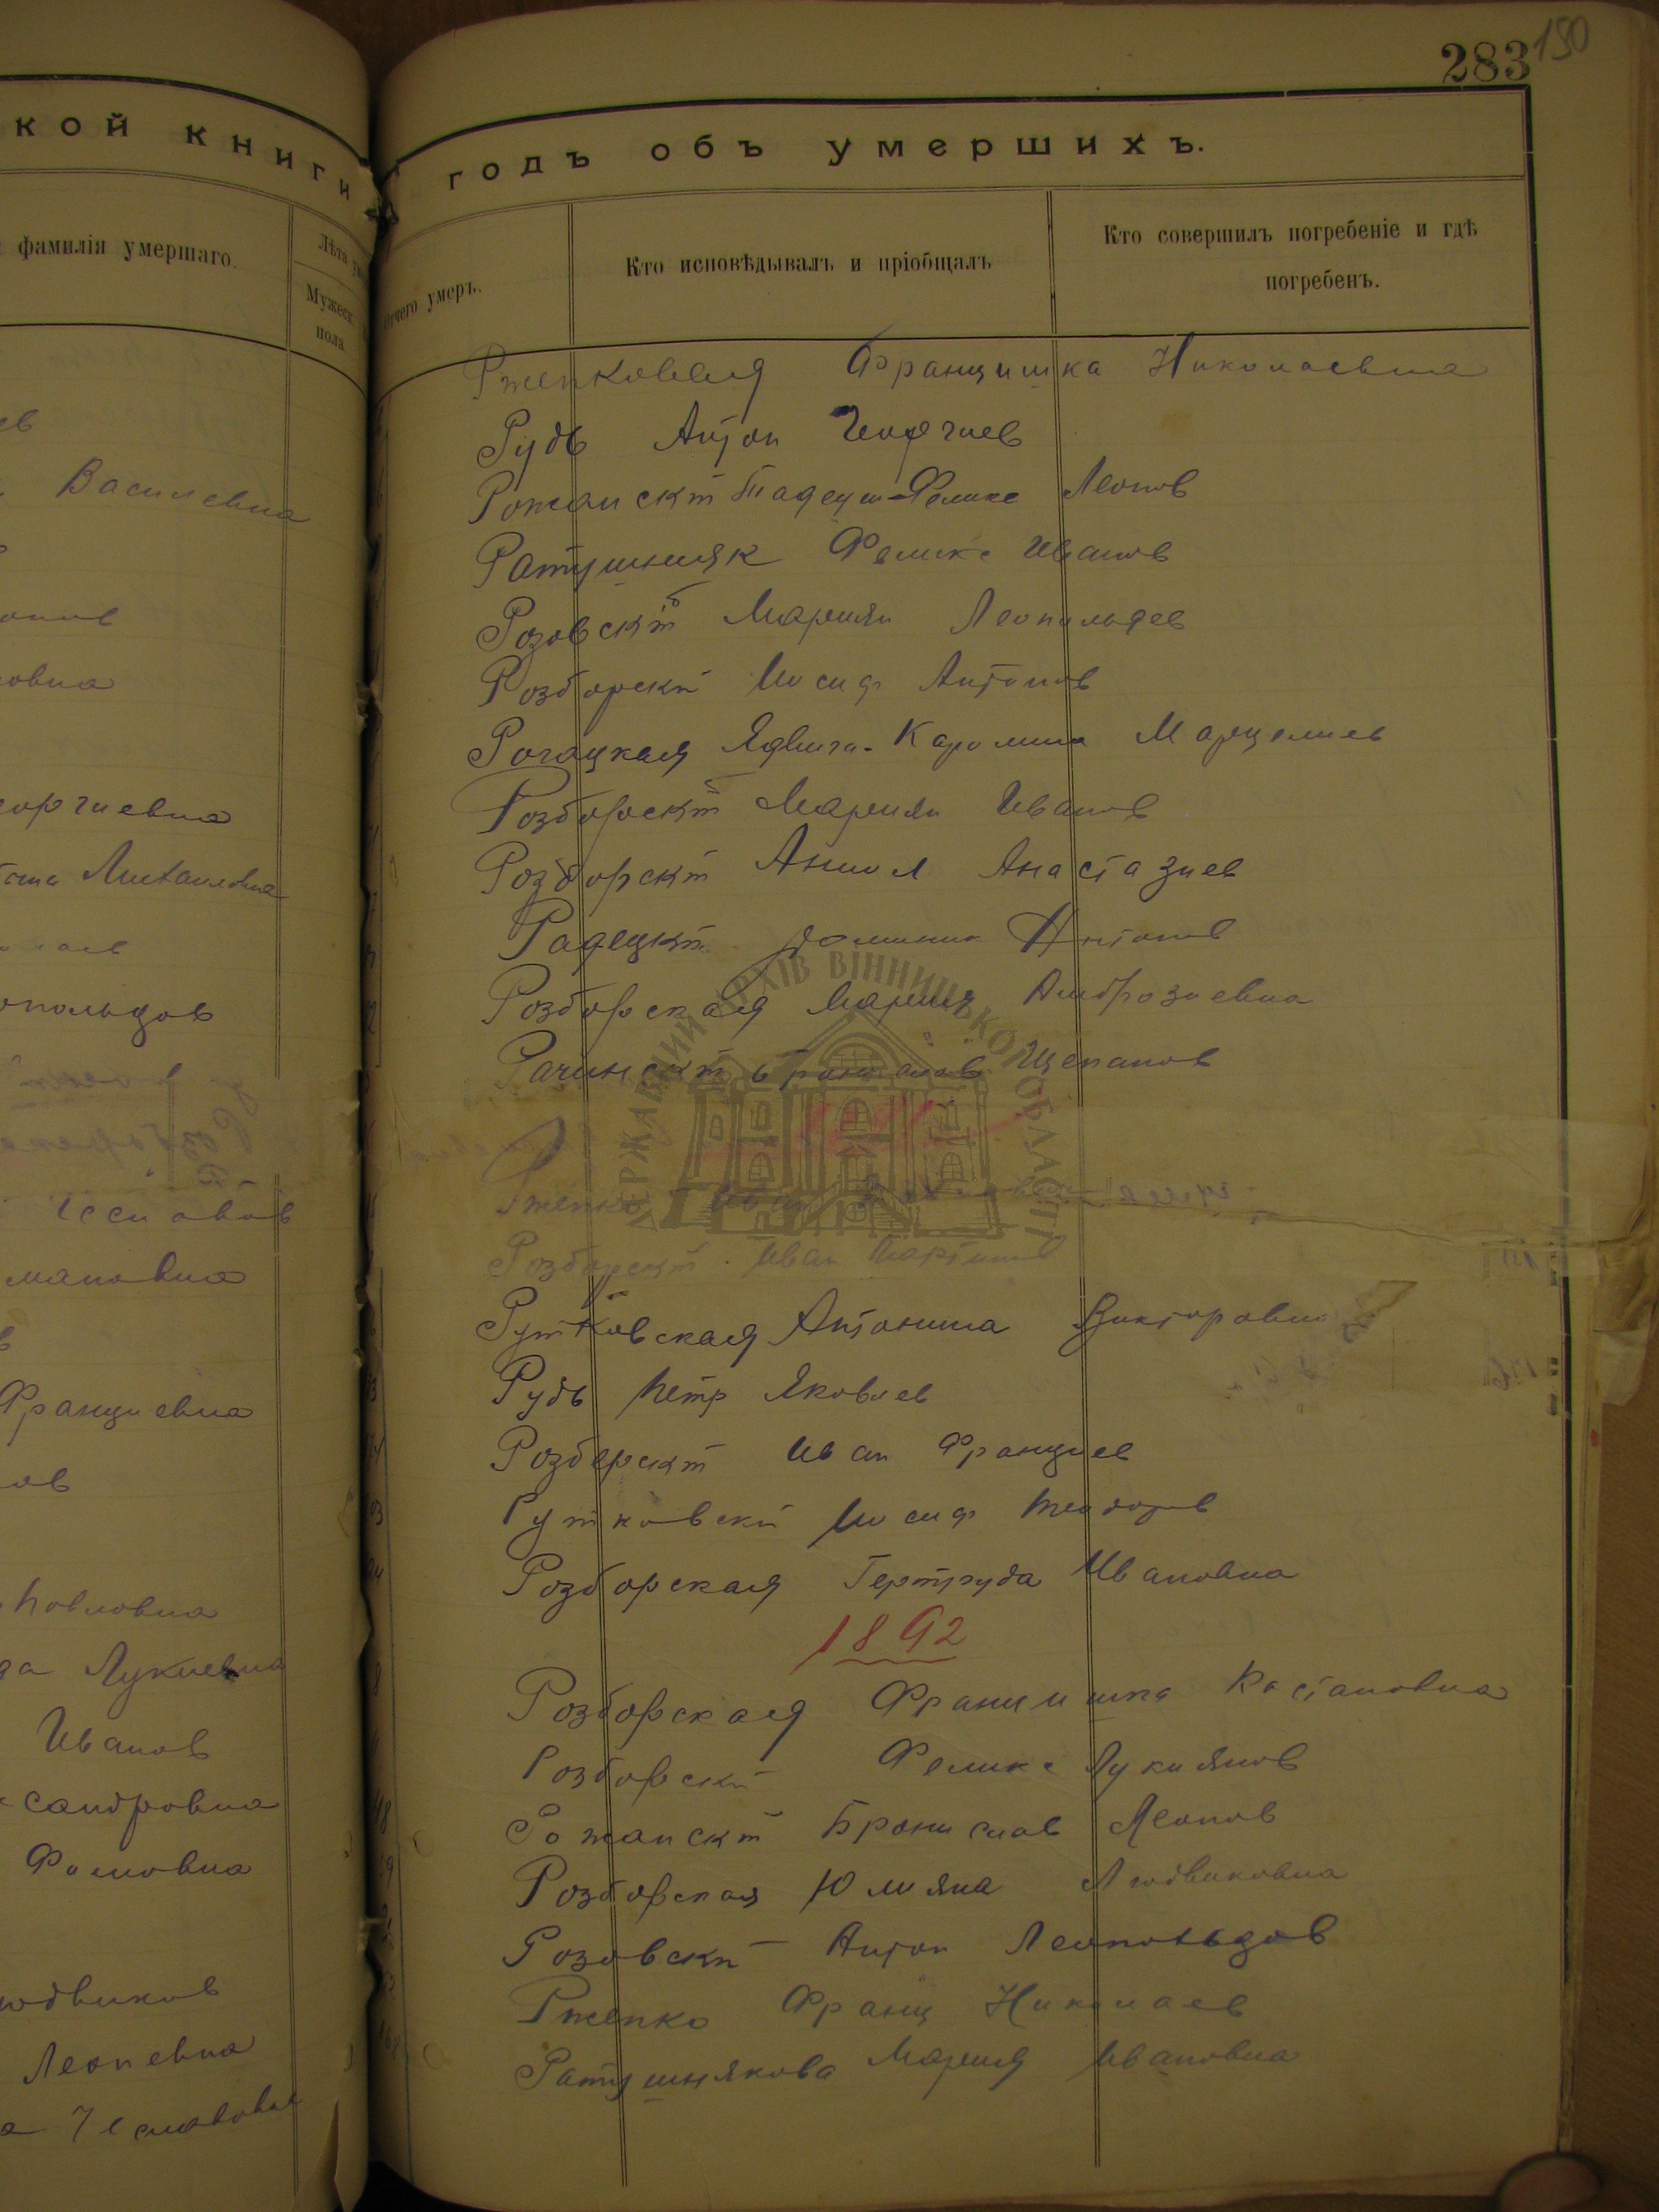 283 190
кой книги
годъ объ умершихъ.
фамилія умершаго.
Лѣта
Мужеск.
пола
Отчего умеръ.
Кто исповѣдывалъ и пріобщалъ
Кто совершилъ погребеніе и гдѣ
погребенъ.
Василевна
овна
оргиевна
Михайловна
опольдов
мановна
Францевна
Повловна
Лукиевна
Иванов
сандровна
Фомовна
юдвиков
Леопевна
Францишка Николаевна
Рудь Антон Георгиев
Рожанскій Тадеуш-Феликс Леонов
Ратушняк Феликс Иванов
Розовскій Мариян Леопольдов
Розборскій Иосиф Антонов
Рогацкая Ядвига-Каролина Марцелиев
Розборскій Мариян Иванов
Розборскій Анастазиев
Радецкій Доминик Антонов
Розборская Мария Амброзиевна
Рачинскій Бронислав Щепанов
Розборскій Иван Мартинов
Рутковская Антонина Викторовна
Рудь Петр Яковлев
Розборскій Иван Францев
Рутковскій Иосиф Теодоров
Розборская Гертруда Ивановна
1892
Розборская Францишка Кастановна
Розборскій Феликс Лукиянов
Рожанскій Бронислав Леонов
Розборская Юлияна Людвиковна
Розовскій Антон Леопольдов
Рженко Франц Николаев
Ратушнякова Мария Ивановна
ДЕРЖАВНИЙ АРХІВ ВІННИЦЬКОЇ ОБЛАСТІ